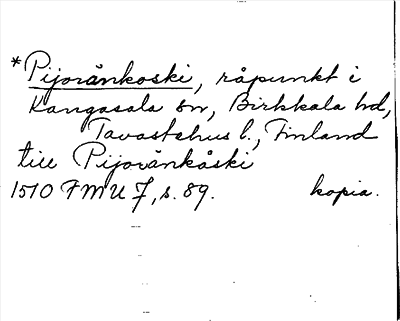 *Pijovånkoski, råpunkt i
Kangasala sn, Birkkala hd,
Tavastehus l., Finland
till Pijovånkåski
1510 FMU 7, s. 89. kopia.